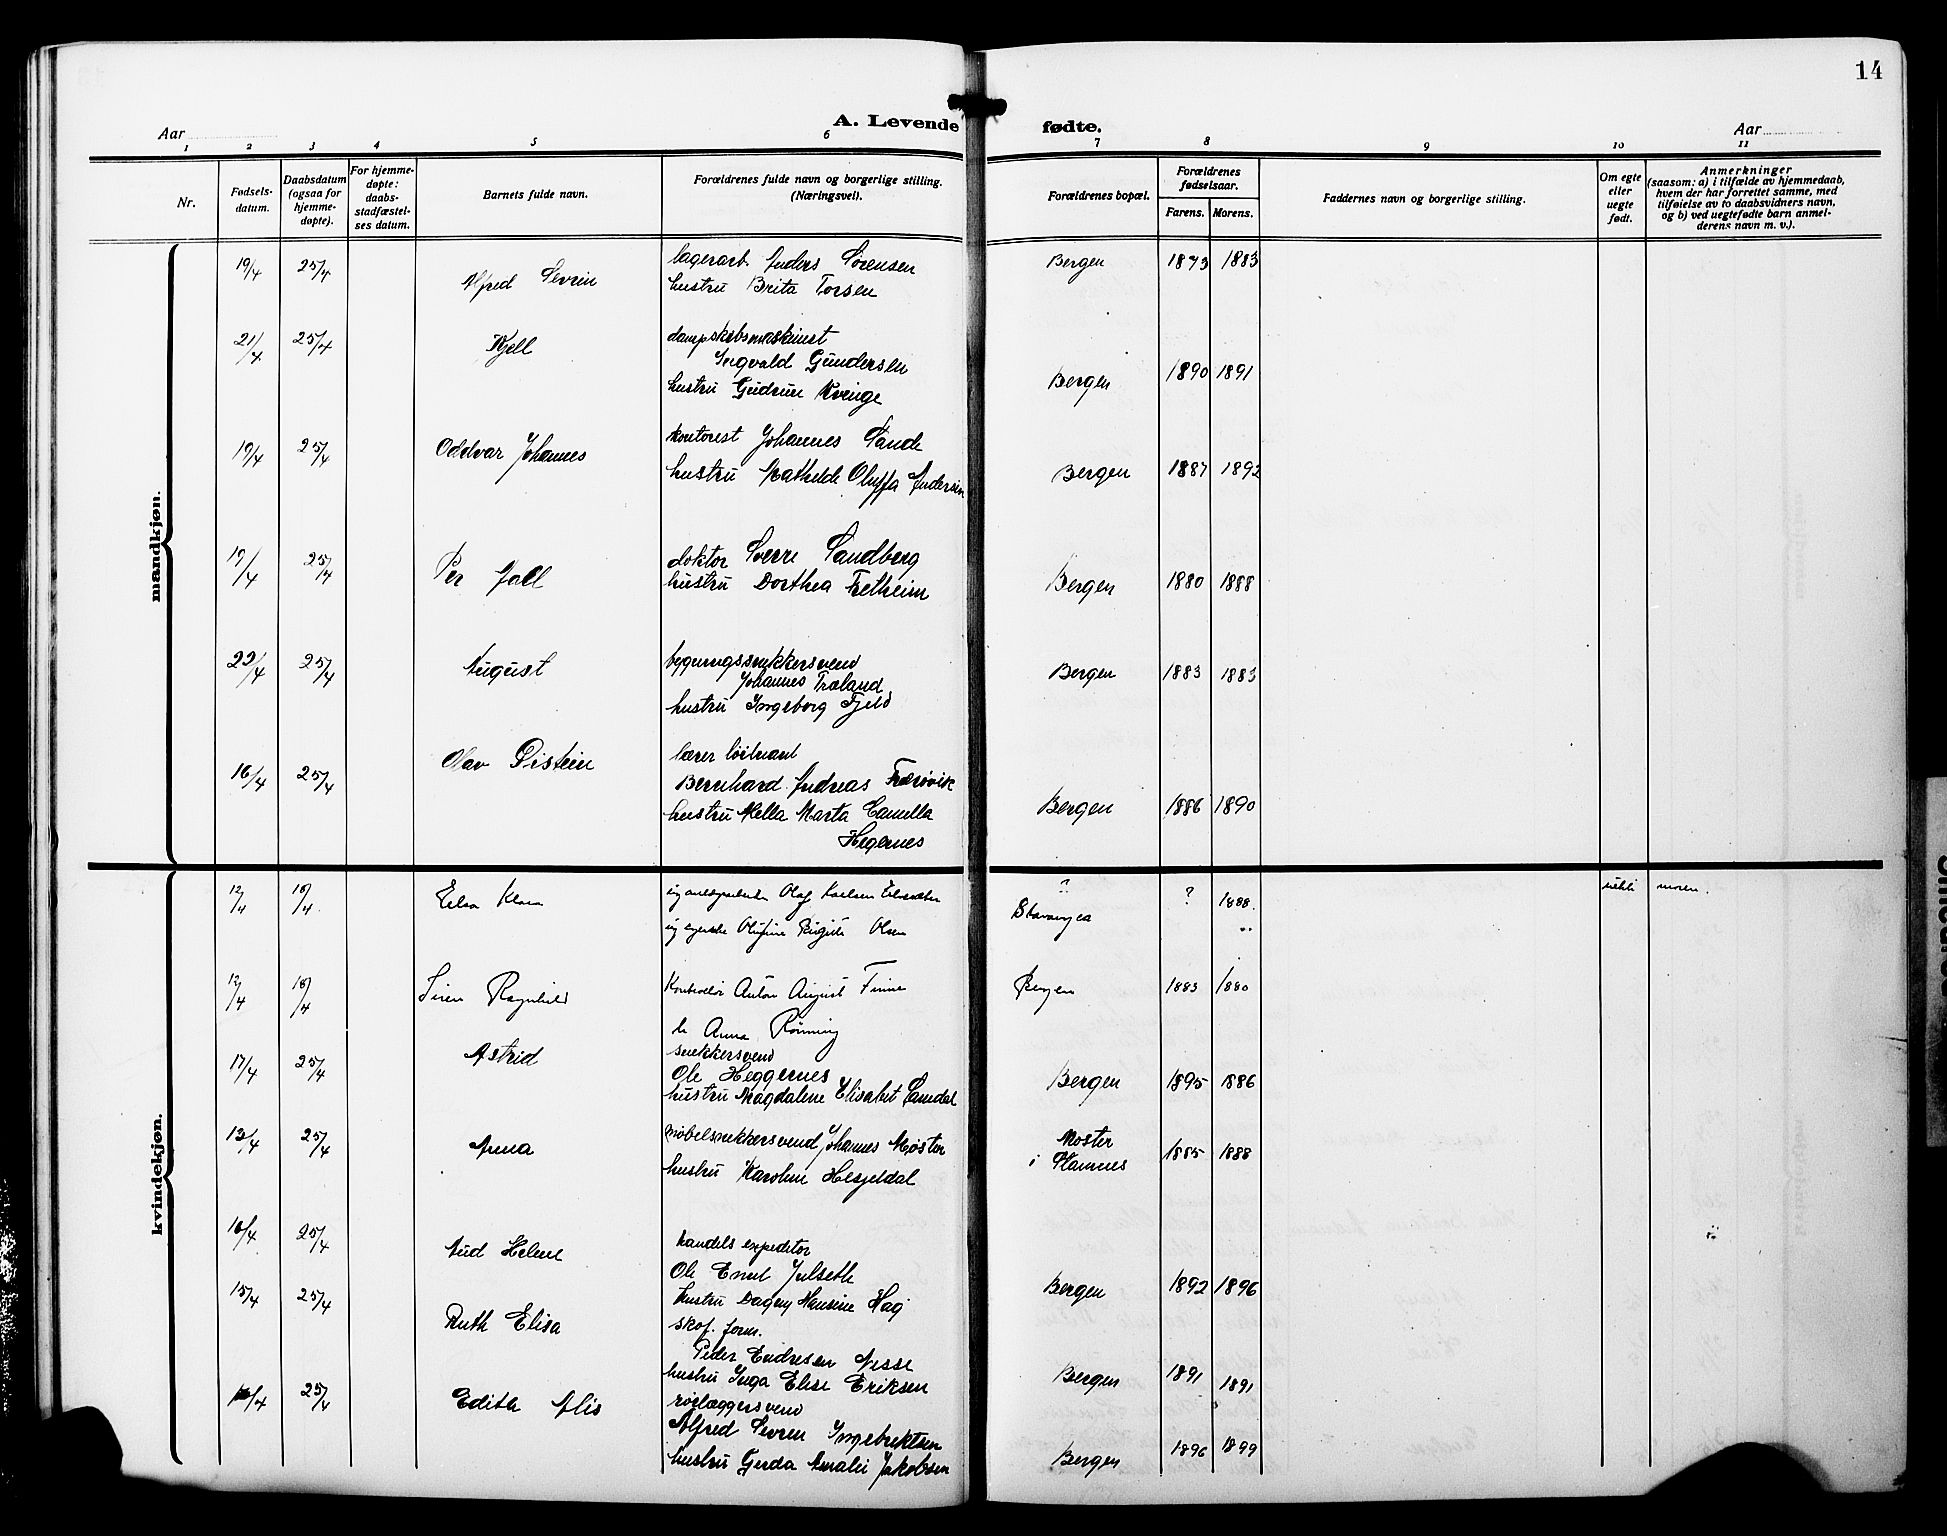 14
A. Levende fødte.
Aar
Aar
1 2 3 4 5 6 7 8 9 10 11
Nr.
Fødsels-
datum.
Daabsdatum
(ogsaa for
hjemme-
døpte).
For hjemme-
døpte:
daabs-
stadfæstel-
ses datum.
Barnets fulde navn.
Forældrenes fulde navn og borgerlige stilling.
(Næringsvei).
Forældrenes bopæl.
Forældrenes
fødselsaar.
Farens. Morens.
Faddernes navn og borgerlige stilling.
Om egte
eller
uegte
født.
Anmerkninger
(saasom: a) i tilfælde av hjemmedaab,
hvem der har forrettet samme, med
tilføielse av to daabsvidners navn,
og b) ved uegtefødte barn anmel-
derens navn m. v.).
mandkjøn.
19/4 25/4 Alfred Sevrin lagerarb. Anders Sørensen Bergen 1873 1883
hustru Brita Torsen
21/4 25/4 Kjell dampskibsmaskinist
Ingvald Gundersen Bergen 1890 1891
hustru Gudrun Kvinge
19/4 25/4 Oddvar Johannes kontorist Johannes Sande
hustru Mathilde Oluffa Andersen Bergen 1887 1892
19/4 25/4 Per Joll doktor Sverre Sandberg
hustru Dorthea Fretheim Bergen 1880 1888
22/4 25/4 August bygningssnekkersvend
Johannes Træland Bergen 1883 1883
hustru Ingeborg Fjeld
16/4 25/4 Olav Øistein lærer løitnant
Bernhard Andreas Færøvik
hustru Mella Marta Camilla Bergen 1886 1890
Hegernes
kvindekjøn.
12/4 18/4 Elsa Klara Olaf Karlsen ? ? 1888 uekte moren.
Olufine Birgitte Olsen Stavanger
12/4 18/4 Siren Ragnhild Kontrollør Anton August Finne Bergen 1883 1880
h. Anna Rönning
17/4 25/4 Astrid snekkersvend
Ole Heggernes
hustru Magdalene Elisabet Samdal Bergen 1895 1886
13/4 25/4 Anna møbelsnekkersvend Johannes Møster Moster
hustru Karoline Hesjedal i Hamnes 1885 1888
16/4 25/4 Aud Helene handels expeditor
Ole Emil Julseth Bergen 1892 1896
hustru Dagny Hansine Hag
15/4 25/4 Ruth Elisa skof. form.
Peder Endresen Nesse
hustru Inga Elise Eriksen Bergen 1891 1891
16/4 25/4 Edith Alis rørlæggersvend
Alfred Sevren Ingebrektsen
hustru Gerda Amalie Jakobsen Bergen 1896 1899